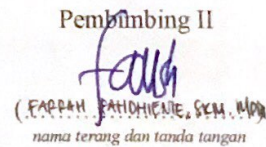 Pembimbing II
(FARRAH FAHDHIENIE, SKM, MPH)
nama terang dan tanda tangan